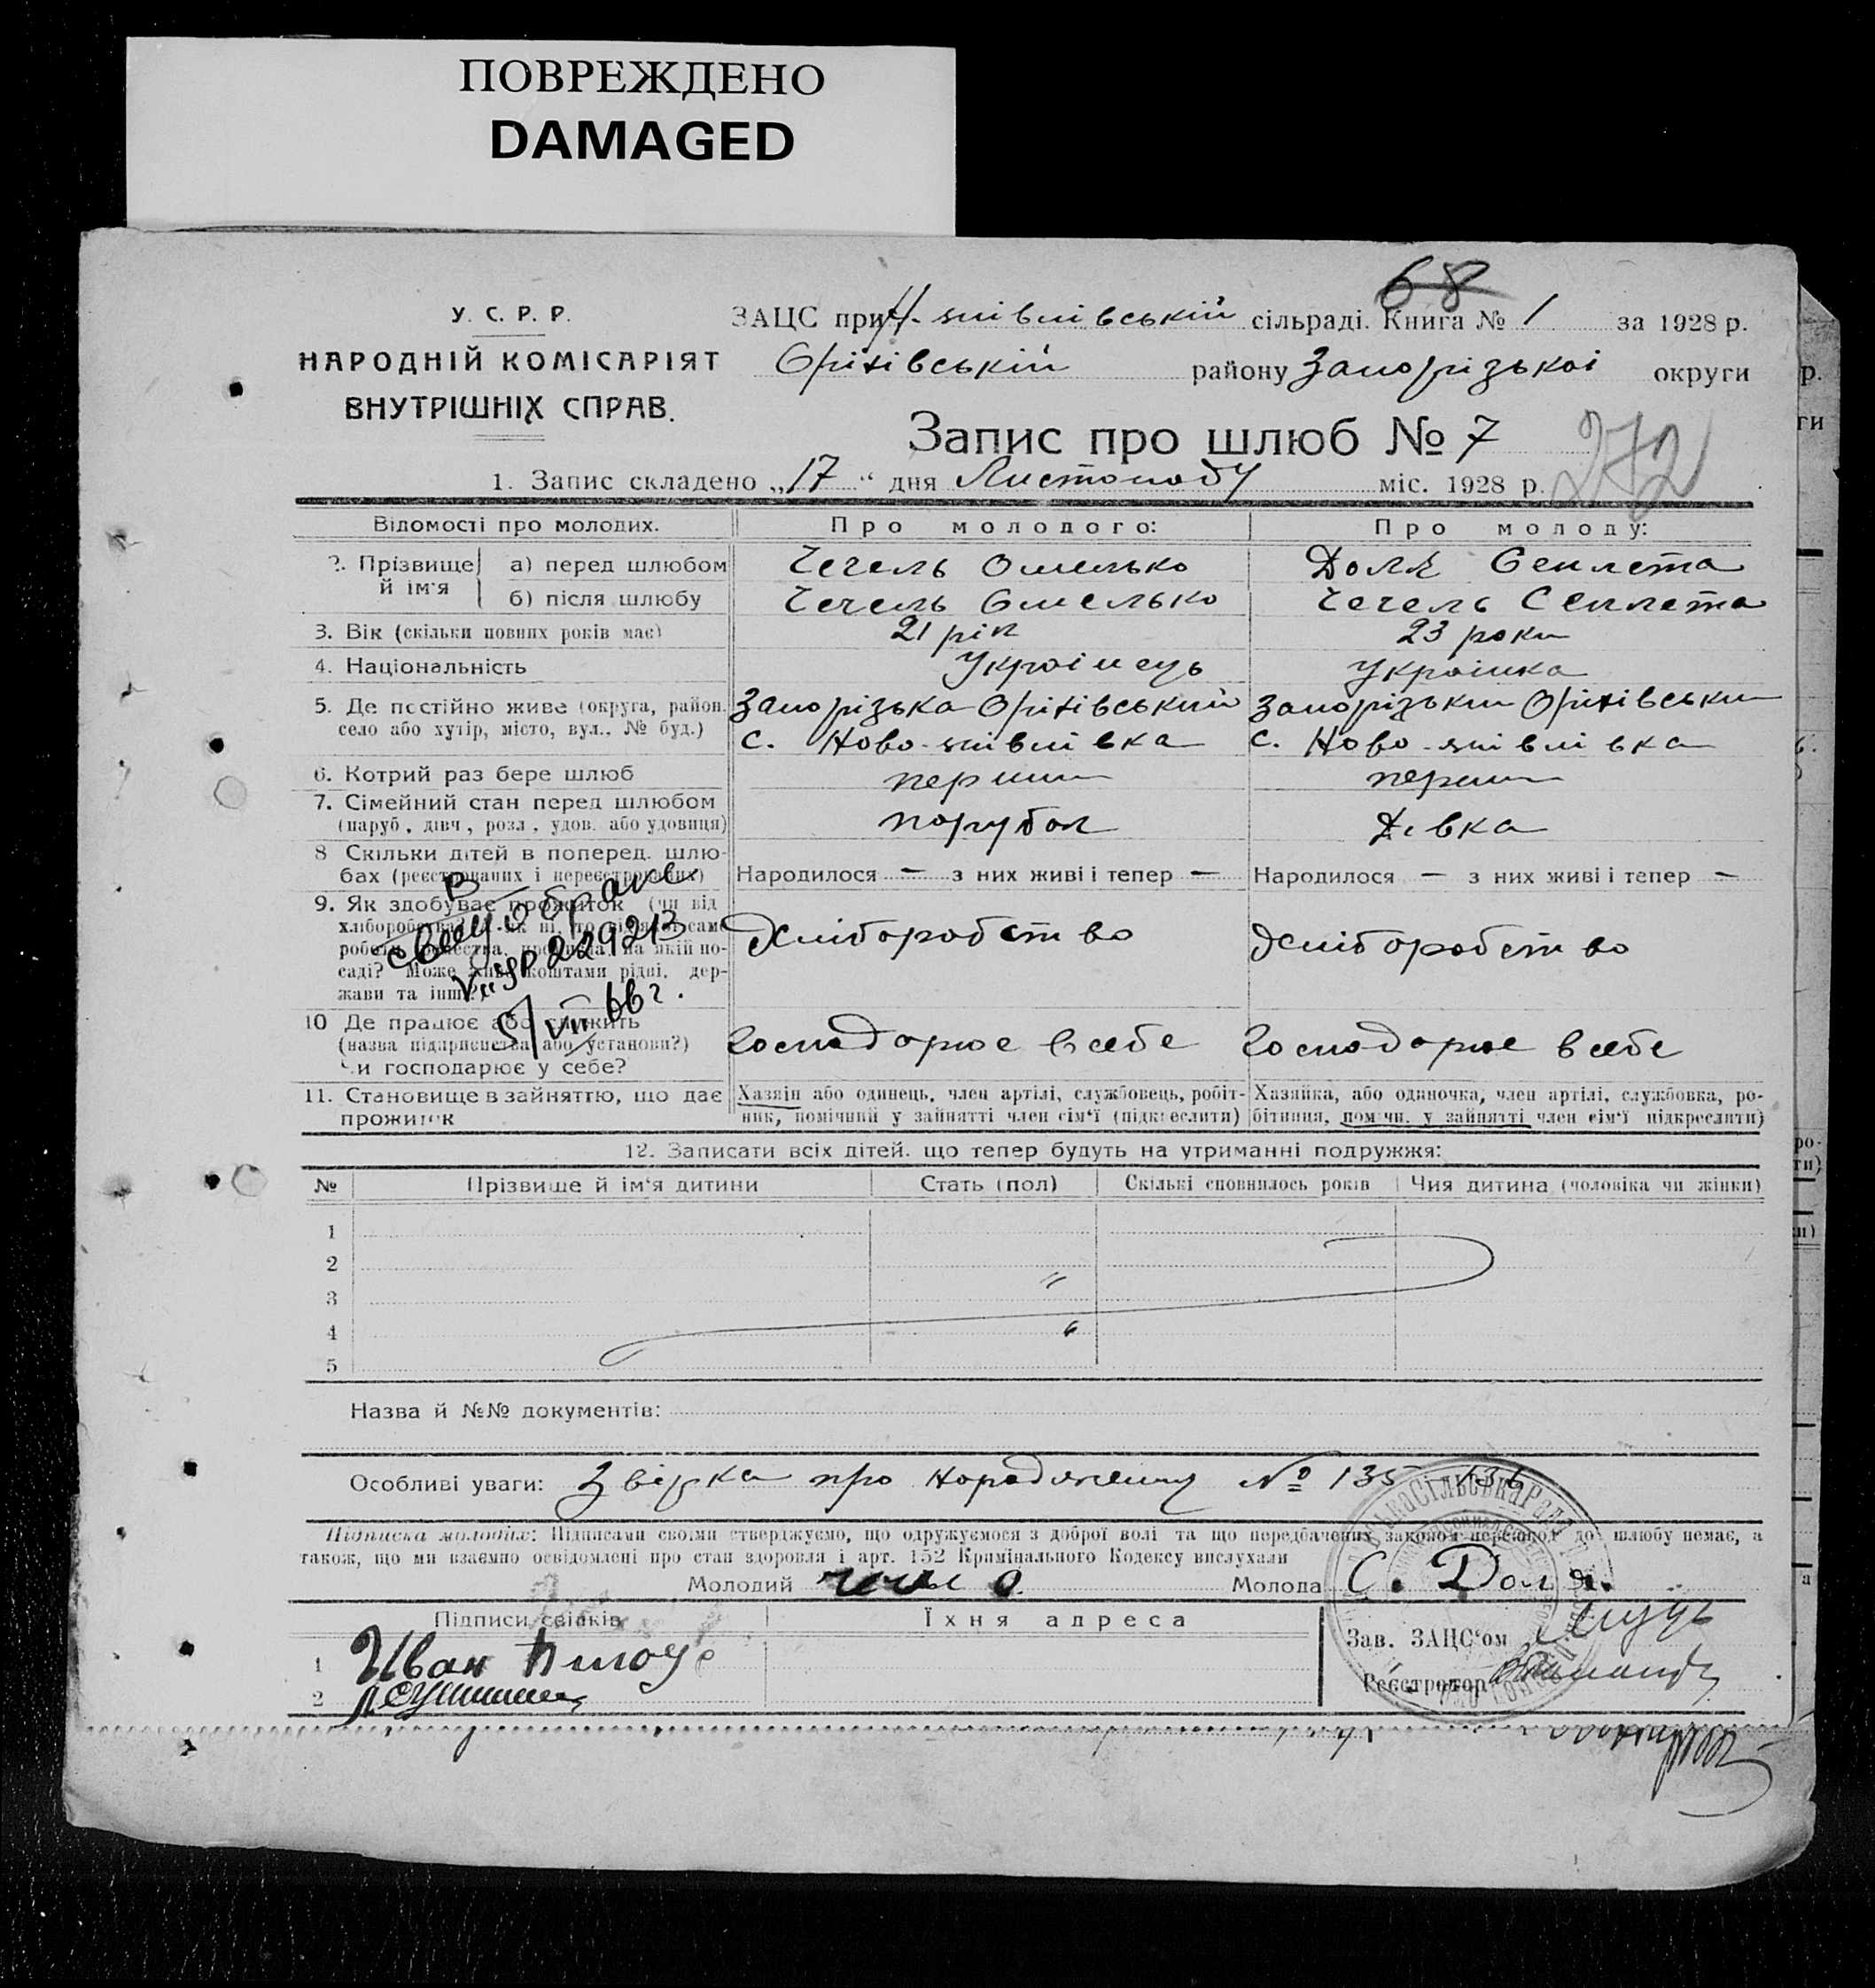 ПОВРЕЖДЕНО
DAMAGED
68
У. С. Р. Р.
НАРОДНІЙ КОМІСАРІЯТ
ВНУТРІШНІХ СПРАВ.
ЗАЦС при сільраді. Книга № 1 за 1928 р.
Оріхівській району Запорізької округи
Запис про шлюб № 7
272
1. Запис складено „17“ дня Листопаду міс. 1928 р.
Відомості про молодих. Про молодого: Про молоду:
2. Прізвище й ім'я а) перед шлюбом Чечель Омелько Доля
б) після шлюбу Чечель Омелько Чечель
3. Вік (скільки повних років має) 21 рік 23 роки
4. Національність Українець Українка
5. Де постійно живе (округа, район, Запорізька Оріхівський Запорізький Оріхівський
село або хутір, місто, вул., № буд.) с. Ново- с. Ново-
6. Котрий раз бере шлюб перший перший
7. Сімейний стан перед шлюбом
(паруб., дівч., розл., удов. або удовиця) парубок Дівка
8 Скільки дітей в поперед. шлю-
бах (реєстрованих і нереєстрованих) Народилося — з них живі і тепер — Народилося — з них живі і тепер —
9. Як здобуває прожиток (чи від
хліборобства? А як ні, то від якої сам Хліборобство Хліборобство
саді? Може живе коштами рідні, дер-
жави та інш.?)
В
браке
229213
5/VII 66 г.
10 Де працює або служить
(назва підприємства або установи?) Господорює в себе Господорює в себе
Чи господарює у себе?
11. Становище в зайняттю, що дає Хазяїн або одинець, член артілі, службовець, робіт- Хазяйка, або одиночка, член артілі, службовка, ро-
прожиток ник, помічний у зайнятті член сім'ї (підкреслити) бітниця, помічн. у зайнятті член сім'ї підкреслити)
12. Записати всіх дітей. що тепер будуть на утриманні подружжя:
№ Прізвище й ім'я дитини Стать (пол) Скількі сповнилось років Чия дитина (чоловіка чи жінки)
1
2
3
4
5
Назва й №№ документів:
Особливі уваги: про № 135 136
Підписка молодих: Підписами своїми стверджуємо, що одружуємося з доброї волі та що передбачених законом перешкод до шлюбу немає, а
також, що ми взаємно освідомлені про стан здоровля і арт. 152 Кримінального Кодексу вислухали
Молодий Молода С. Доля.
Підписи свідків Їхня адреса
Зав. ЗАЦС'ом
1 Иван
Реєстратор
2